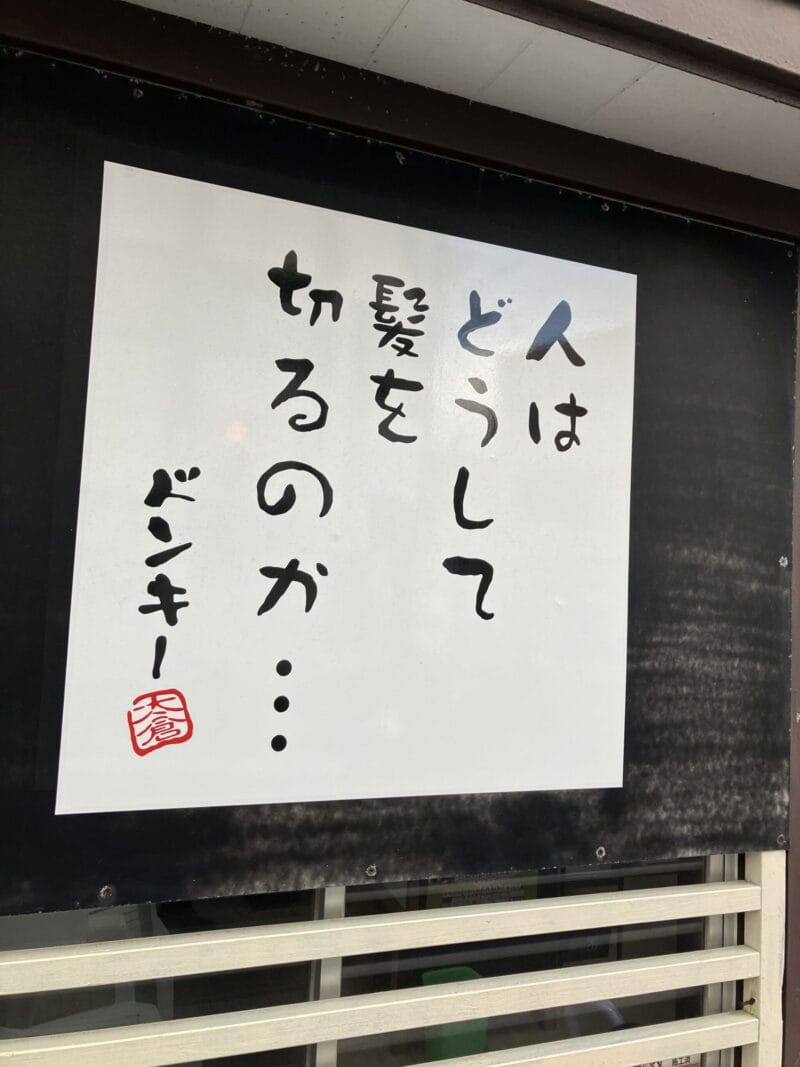 人は
どうして
髪を
切るのか…
ドンキー
大倉
施工済